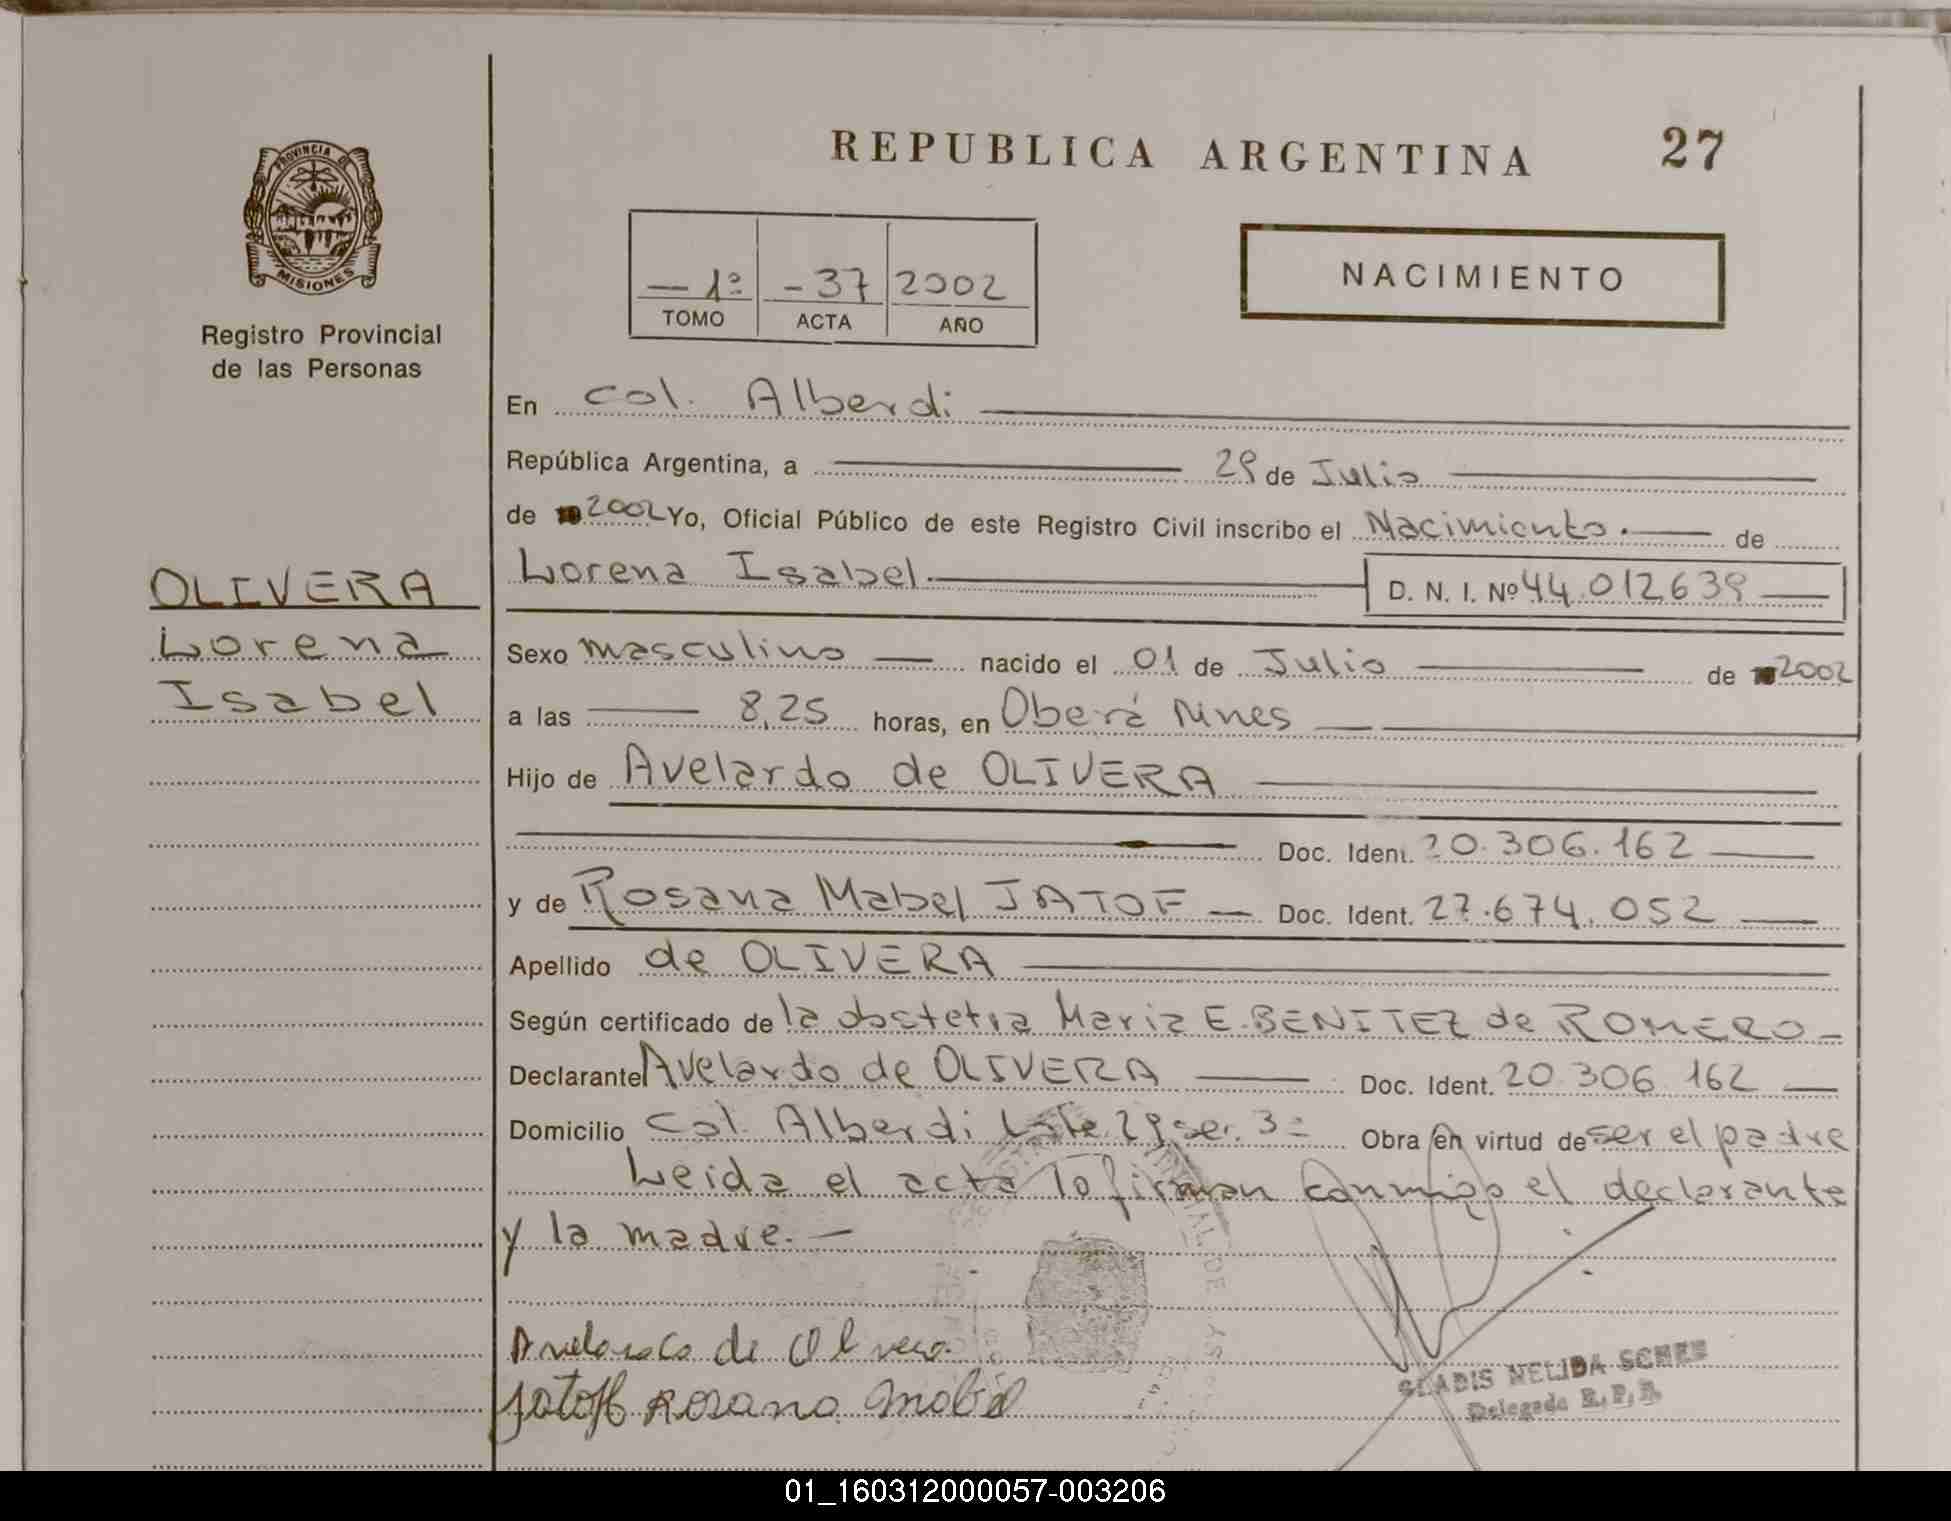 REPUBLICA ARGENTINA 27
PROVINCIA DE
MISIONES
Registro Provincial
de las Personas
— 1º - 37 2002
TOMO ACTA AÑO
NACIMIENTO
En Col. Alberdi
República Argentina, a 29 de Julio
de 2002 Yo, Oficial Público de este Registro Civil inscribo el Nacimiento.— de
Lorena Isabel.— D. N. I. Nº 44.012.639 —
OLIVERA
Lorena
Isabel
Sexo masculino — nacido el 01 de Julio — de 2002
a las — 8,25 horas, en Oberá Mnes —
Hijo de Avelardo de OLIVERA
Doc. Ident. 20.306.162 —
y de Rosana Mabel JATOF — Doc. Ident. 27.674.052 —
Apellido de OLIVERA —
Según certificado de la obstetra Maria E. BENITEZ de ROMERO -
Declarante Avelardo de OLIVERA — Doc. Ident. 20.306.162 —
Domicilio Col. Alberdi Lote 29 sec. 3ª Obra en virtud de ser el padre
Leida el acta lo firman conmigo el declarante
y la madre. —
Avelardo de Olivera
Jatoff Rosana Mabel
GLADIS NELIDA
Delegada R.P.P.
01_160312000057-003206